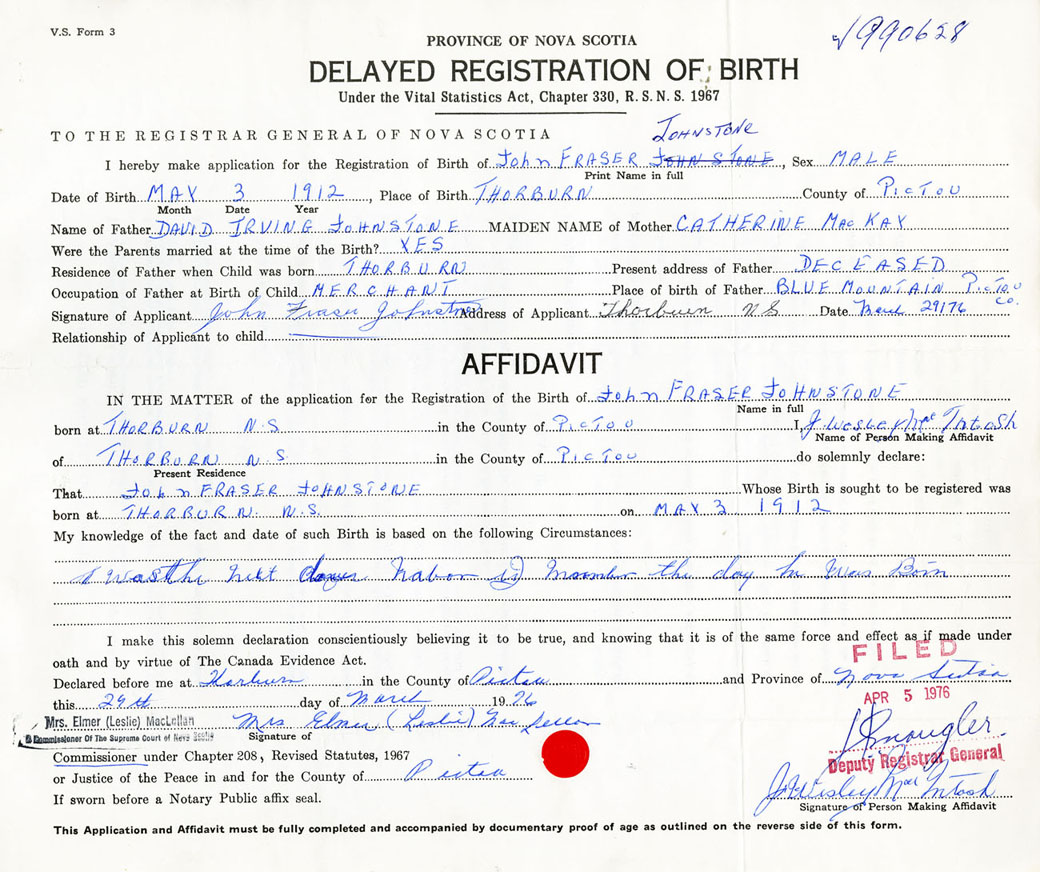 V.S. Form 3
990628
PROVINCE OF NOVA SCOTIA
DELAYED REGISTRATION OF BIRTH
Under the Vital Statistics Act, Chapter 330, R.S.N.S. 1967
TO THE REGISTRAR GENERAL OF NOVA SCOTIA
JOHNSTONE
I hereby make application for the Registration of Birth of John FRASER JOHNSTONE, Sex MALE
Print Name in full
Date of Birth MAY 3 1912, Place of Birth THORBURN County of PICTOU
Month Date Year
Name of Father DAVID IRVING JOHNSTONE MAIDEN NAME of Mother CATHERINE MacKAY
Were the Parents married at the time of the Birth? YES
Residence of Father when Child was born THORBURN Present address of Father DECEASED
Occupation of Father at Birth of Child MERCHANT Place of birth of Father BLUE MOUNTAIN PICTOU CO.
Signature of Applicant John Fraser Johnstone Address of Applicant Thorburn NS Date March 29/76
Relationship of Applicant to child
AFFIDAVIT
IN THE MATTER of the application for the Registration of the Birth of John FRASER JOHNSTONE
Name in full
born at THORBURN N.S. in the County of PICTOU I, J Wesley MacIntosh
Name of Person Making Affidavit
of THORBURN N.S. in the County of PICTOU do solemnly declare:
Present Residence
That John FRASER JOHNSTONE Whose Birth is sought to be registered was
born at THORBURN. N.S. on MAY 3 1912
My knowledge of the fact and date of such Birth is based on the following Circumstances:
I Was the Next Nabor the day he Was Born
I make this solemn declaration conscientiously believing it to be true, and knowing that it is of the same force and effect as if made under
oath and by virtue of The Canada Evidence Act.
FILED
Declared before me at Thorburn in the County of Pictou and Province of Nova Scotia
this 29th day of March 1976
APR 5 1976
Mrs. Elmer (Leslie) MacLellan Mrs Elmer (Leslie) MacLellan
A Commissioner Of The Supreme Court of Nova Scotia Signature of
Commissioner under Chapter 208, Revised Statutes, 1967
Deputy Registrar General
or Justice of the Peace in and for the County of Pictou
J. Wesley MacIntosh
If sworn before a Notary Public affix seal. Signature of Person Making Affidavit
This Application and Affidavit must be fully completed and accompanied by documentary proof of age as outlined on the reverse side of this form.